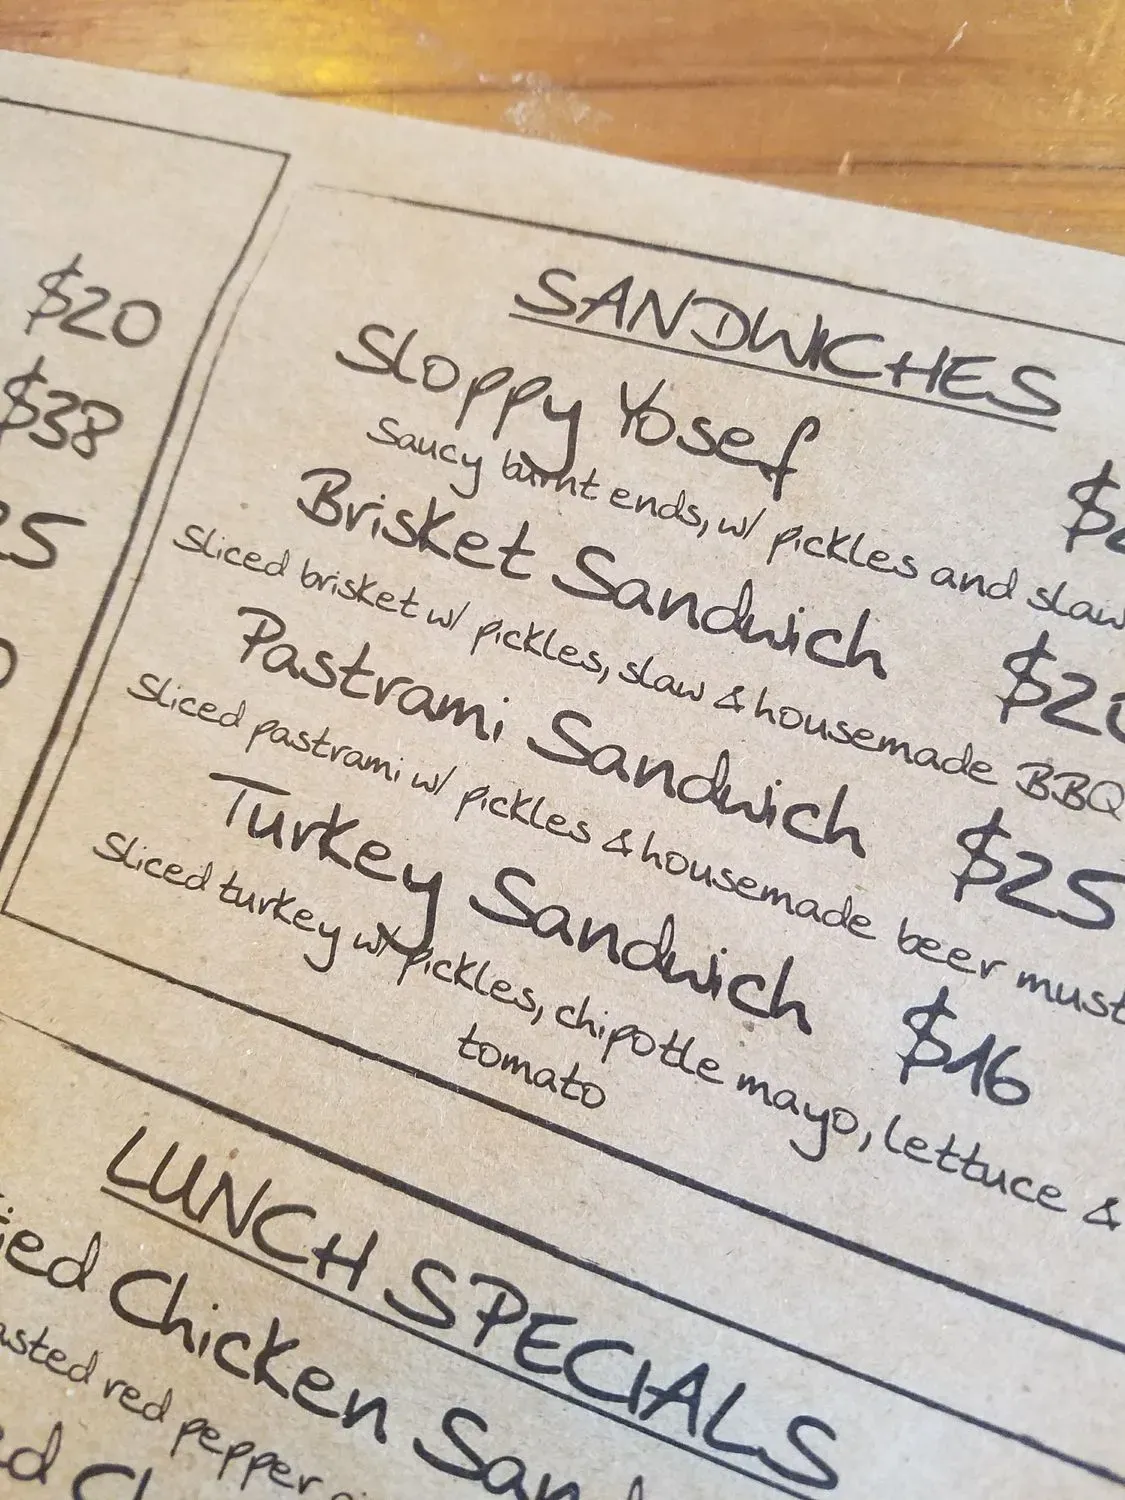 $20
$38
SANDWICHES
Sloppy Yosef
Saucy burnt ends, w/ pickles and slaw
Brisket Sandwich
Sliced brisket w/ pickles, slaw & housemade BBQ
Pastrami Sandwich $25
Sliced pastrami w/ pickles & housemade beer must
Turkey Sandwich $16
Sliced turkey w/ pickles, chipotle mayo, lettuce &
tomato
LUNCH SPECIALS
Chicken
red pepper